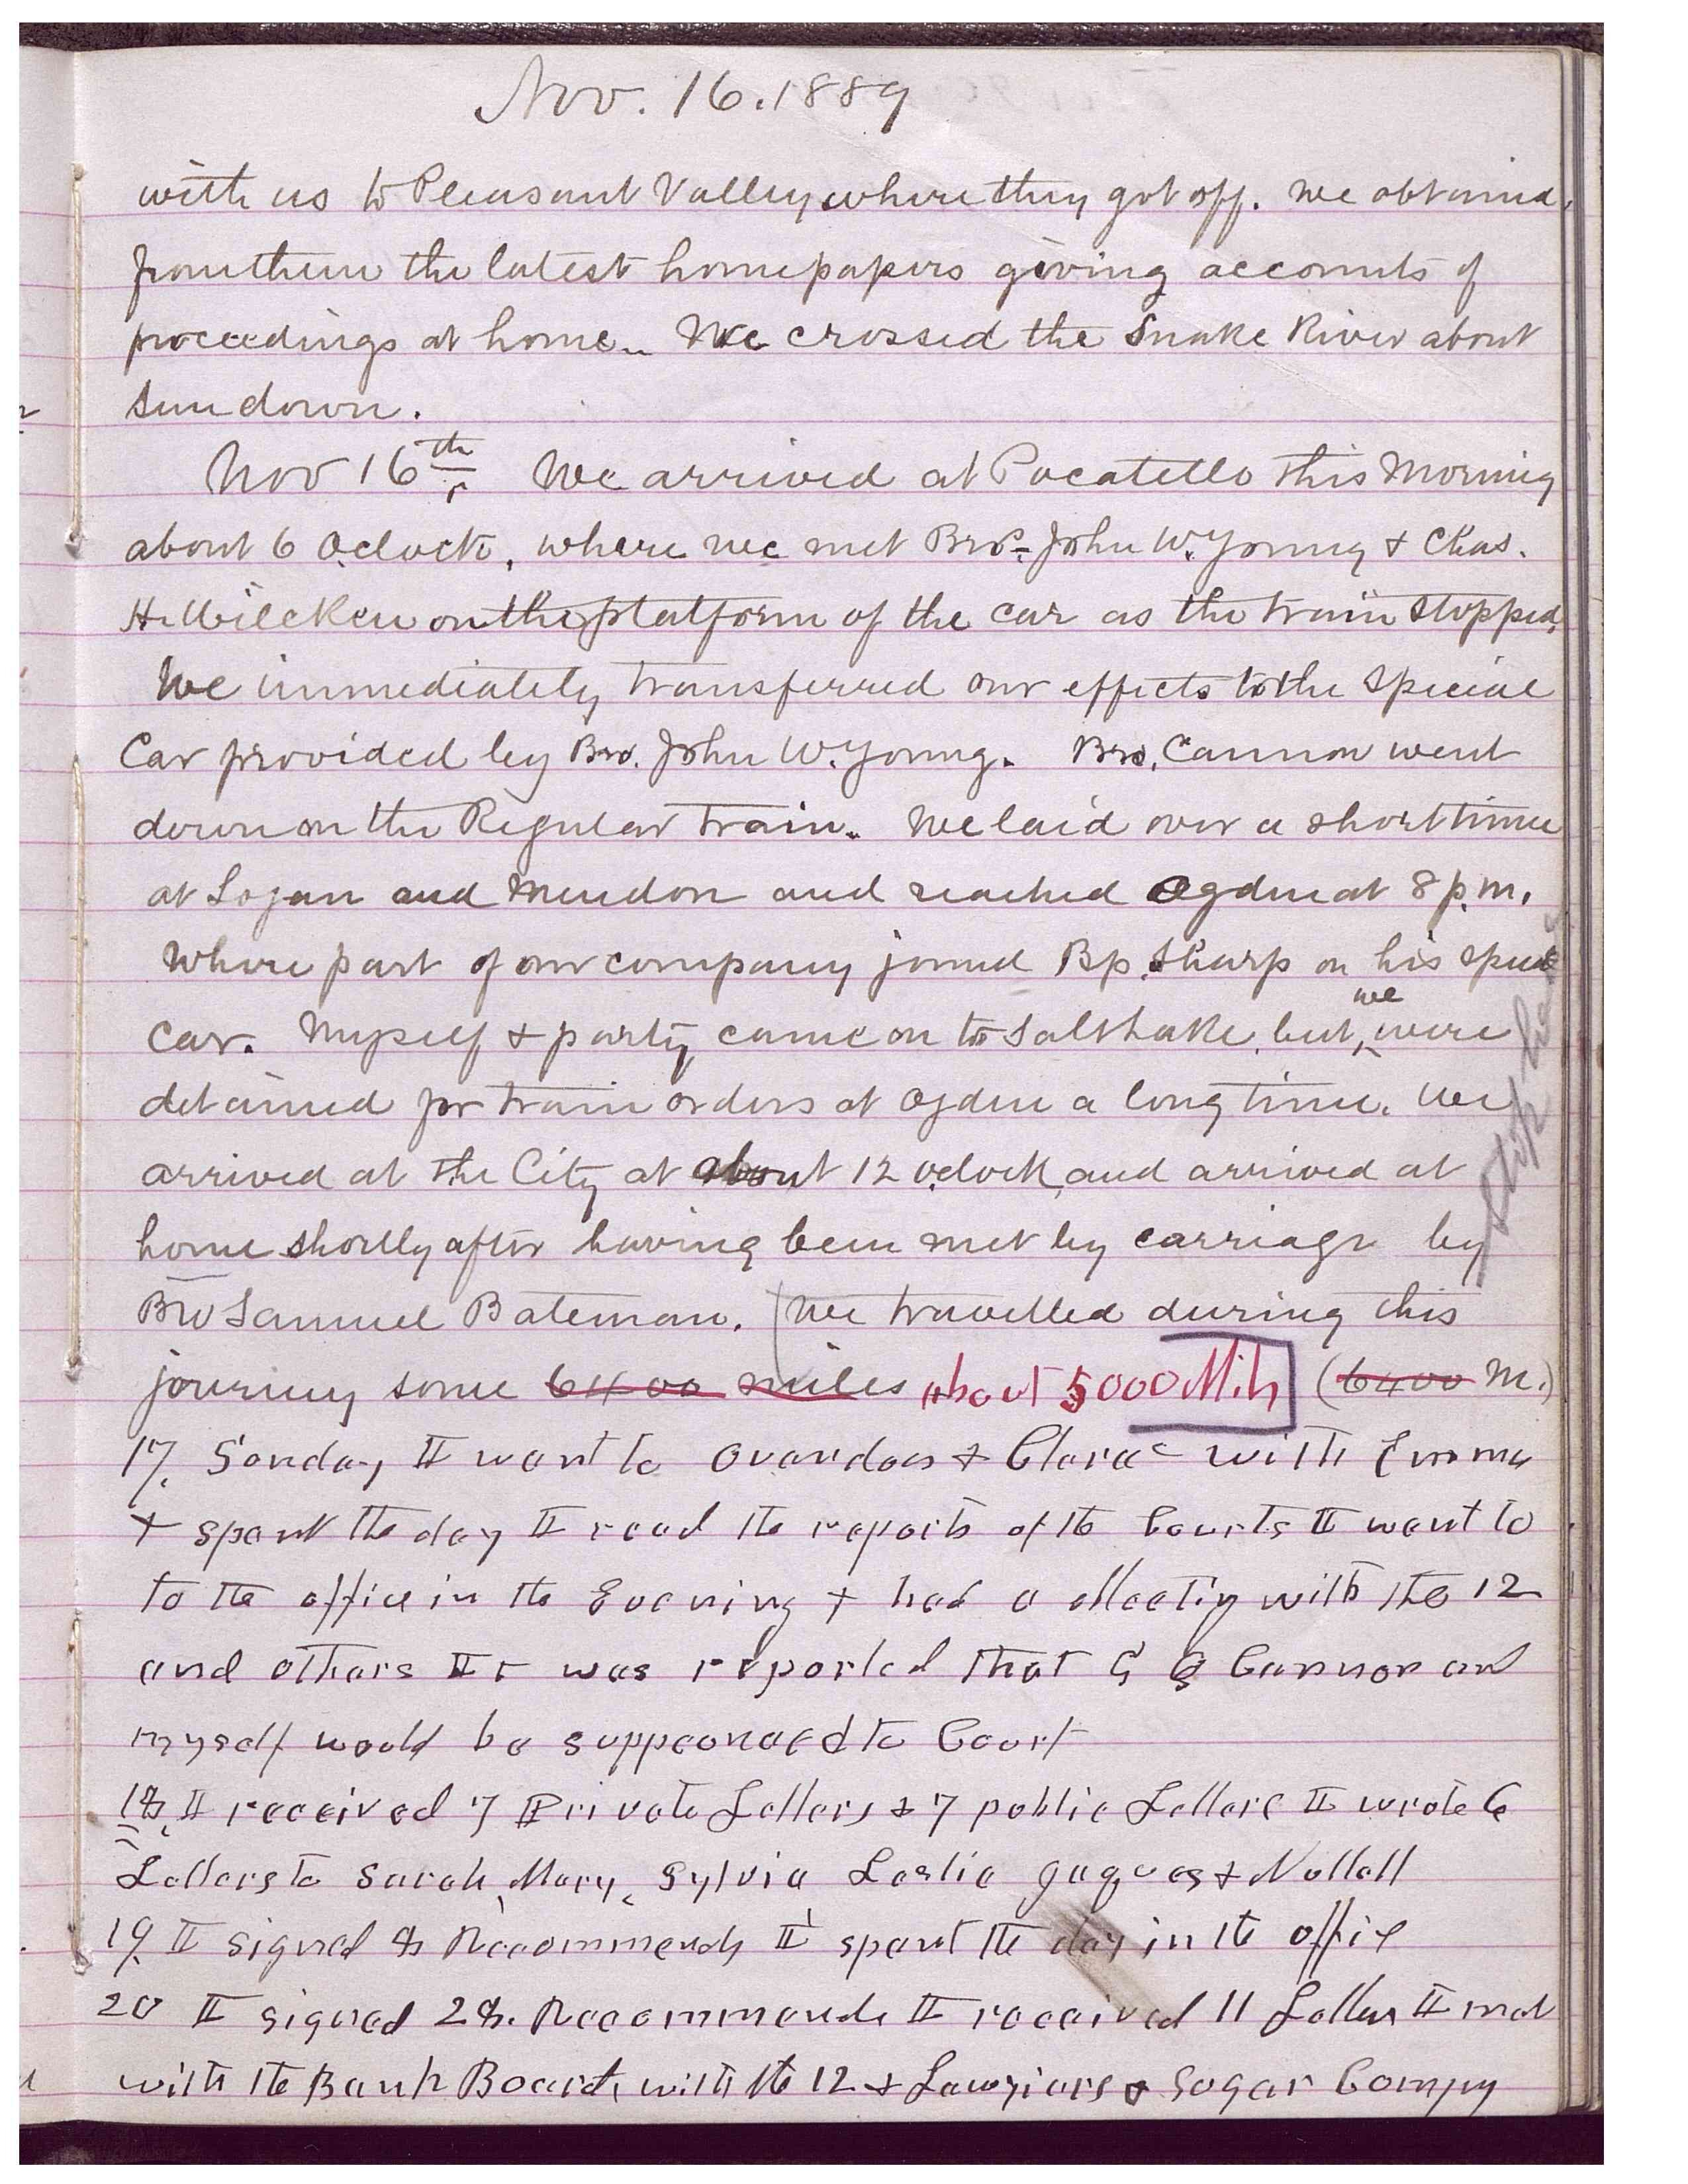 Nov. 16. 1889
with us to Pleasant Valley where they got off. We obtained
from them the latest home papers giving accounts of
proceedings at home. We crossed the Snake River about
sun down.
Nov 16th. We arrived at Pocatello this Morning
about 6 Oclock, where we met Bro- John W. Young & Chas.
H. Wilcken on the platform of the car as the train stopped.
We immediately transferred our effects to the Special
Car provided by Bro. John W. Young. Bro. Cannon went
down on the Regular Train. We laid over a short time
at Logan and Mendon and reached Ogden at 8 p.m.
Where part of our company joined Bp. Sharp on his
we
car. Myself & party came on to Salt Lake, but, ^ were
detained for train orders at Ogden a long time. We
arrived at the City at about 12 oclock, and arrived at
home shortly after having been met by carriage by
Bro Samuel Bateman. (We travelled during this
journey some 6400 miles about 5000 Mils (6400 M.)
17. Sunday II went to Ovandos & Claras with Emma
& spent the day II read the reports of the Courts II went to
to the office in the Evening & had a Meetig with the 12
and others It was reported that G Q Cannon and
myself would be suppeonaed to Court
18, II received 7 Private Letters & 7 public Letters II wrote 6
Letters to Sarah, Mary, Sylvia Leslie Jaques & Nuttall
19. II signed 8 Recommends II spent the day in the offie
20 II signed 28. Recommends II received 11 Letters II met
with the Bank Board, with the 12 & Lawyiers & Sugar Compy
stop